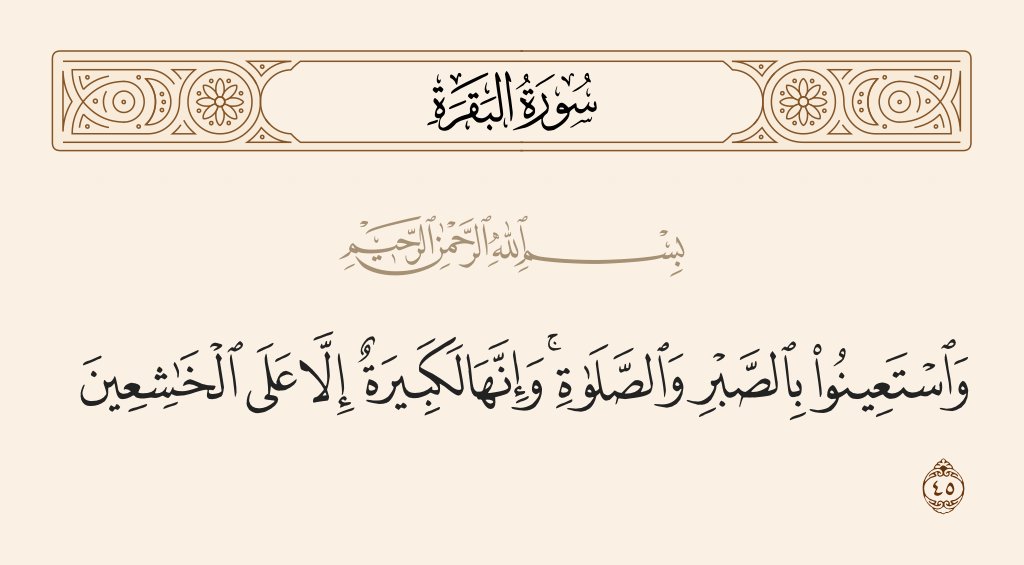 سُورَةُ البَقَرَةِ
بِسْمِ ٱللَّهِ ٱلرَّحْمَٰنِ ٱلرَّحِيمِ
وَٱسْتَعِينُوا۟ بِٱلصَّبْرِ وَٱلصَّلَوٰةِ ۚ وَإِنَّهَا لَكَبِيرَةٌ إِلَّا عَلَى ٱلْخَٰشِعِينَ
٤٥